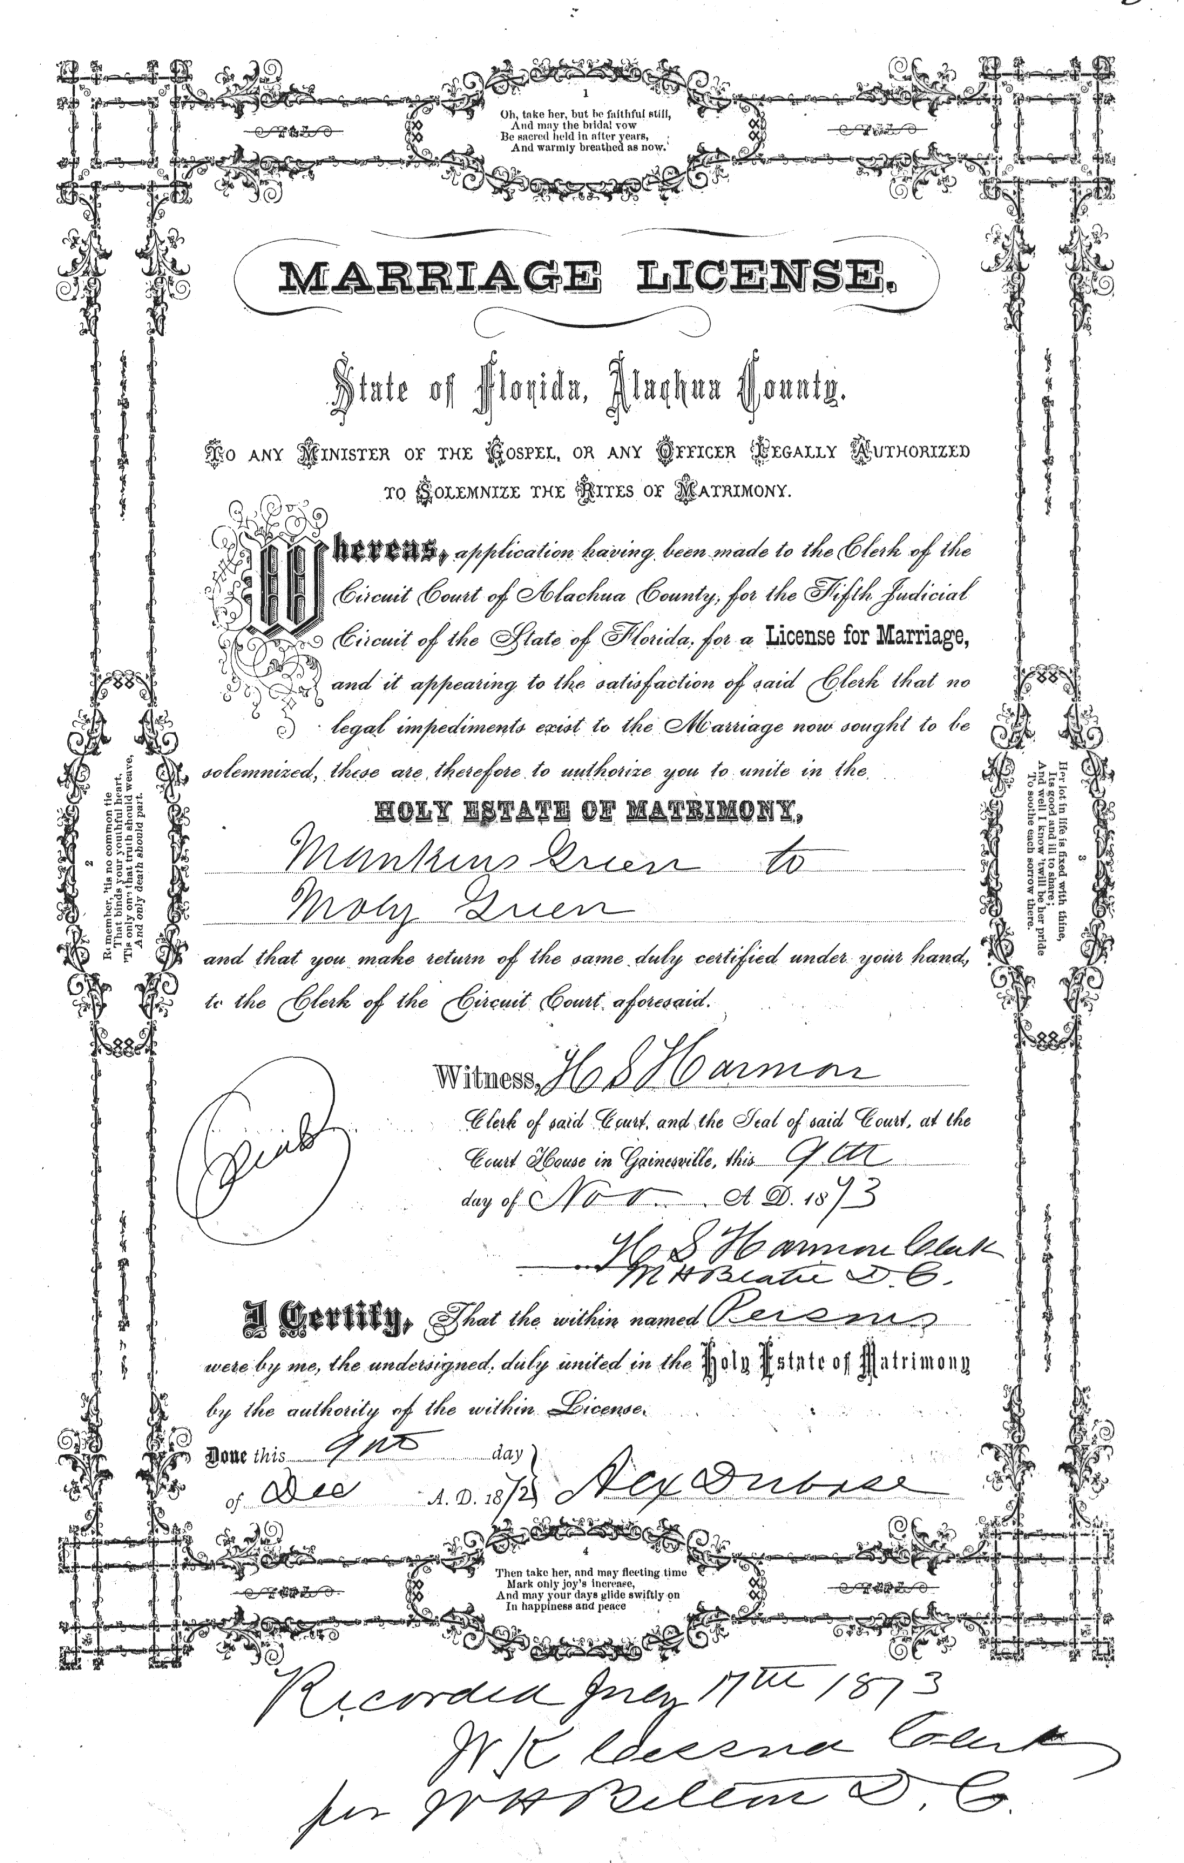 1
Oh, take her, but be faithful still,
And may the bridal vow
Be sacred held in after years,
And warmly breathed as now.
MARRIAGE LICENSE.
State of Florida, Alachua County.
TO ANY MINISTER OF THE GOSPEL, OR ANY OFFICER LEGALLY AUTHORIZED
TO SOLEMNIZE THE RITES OF MATRIMONY.
Whereas, application having been made to the Clerk of the
Circuit Court of Alachua County, for the Fifth Judicial
Circuit of the State of Florida, for a License for Marriage,
and it appearing to the satisfaction of said Clerk that no
legal impediments exist to the Marriage now sought to be
solemnized, these are, therefore to authorize you to unite in the
HOLY ESTATE OF MATRIMONY,
Mankins Green to
Moly Green
and that you make return of the same duly certified under your hand,
to the Clerk of the Circuit Court aforesaid.
2
Remember, 'tis no common tie
That binds your youthful heart,
'Tis only one that truth should weave,
And only death should part.
3
Her lot in life is fixed with thine,
Its good and ill to share;
And well I know 'twill be her pride
To soothe each sorrow there.
Witness, H S Harmon
Clerk of said Court, and the Seal of said Court, at the
Court House in Gainesville, this 9th
day of Nov A. D. 1873
H S Harmon Clerk
D. C.
I Certify, That the within named Persons
were by me, the undersigned, duly united in the Holy Estate of Matrimony
by the authority of the within License.
Done this day
of Dec A. D. 1872 Alex Dubose
4
Then take her, and may fleeting time
Mark only joy's increase,
And may your days glide swiftly on
In happiness and peace
Recorded 17th 1873
Cessna Clerk
per D. C.